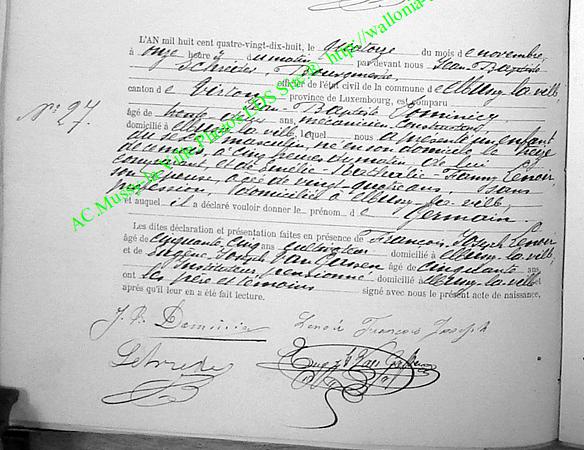 L'AN mil huit cent quatre-vingt-dix-huit, le quatorze du mois de novembre,
à onze heures du matin par devant nous Jean Baptiste
Schréder, Bourgmestre
officier de l'état civil de la commune de Mussy-la-ville,
canton de Virton province de Luxembourg, est comparu
N° 27.
Jean Baptiste Dominicy
âgé de trente ans, mécanicien
domicilié à Mussy-la-ville, lequel nous a présenté un enfant
du sexe masculin, né en son domicile le
de ce mois, à cinq heures du matin de lui
comparant et de Amélie Nathalie Fanny Lenoir,
son épouse, âgée de vingt-quatre ans, sans
profession, domiciliée à Mussy-la-ville,
et auquel il a déclaré vouloir donner le prénom de
Germain.
Les dites déclaration et présentation faites en présence de François Joseph Lenoir
âgé de cinquante cinq ans cultivateur domicilié à Mussy-la-ville,
et de Eugène Joseph Van âgé de cinquante ans
Instituteur pensionné domicilié à Mussy-la-ville et
les père et témoins signé avec nous le présent acte de naissance,
après qu'il leur en a été fait lecture.
J. B. Dominicy
Lenoir François Joseph
AC.Mussy-la-Ville Photos LDS Stage. http://wallonia-